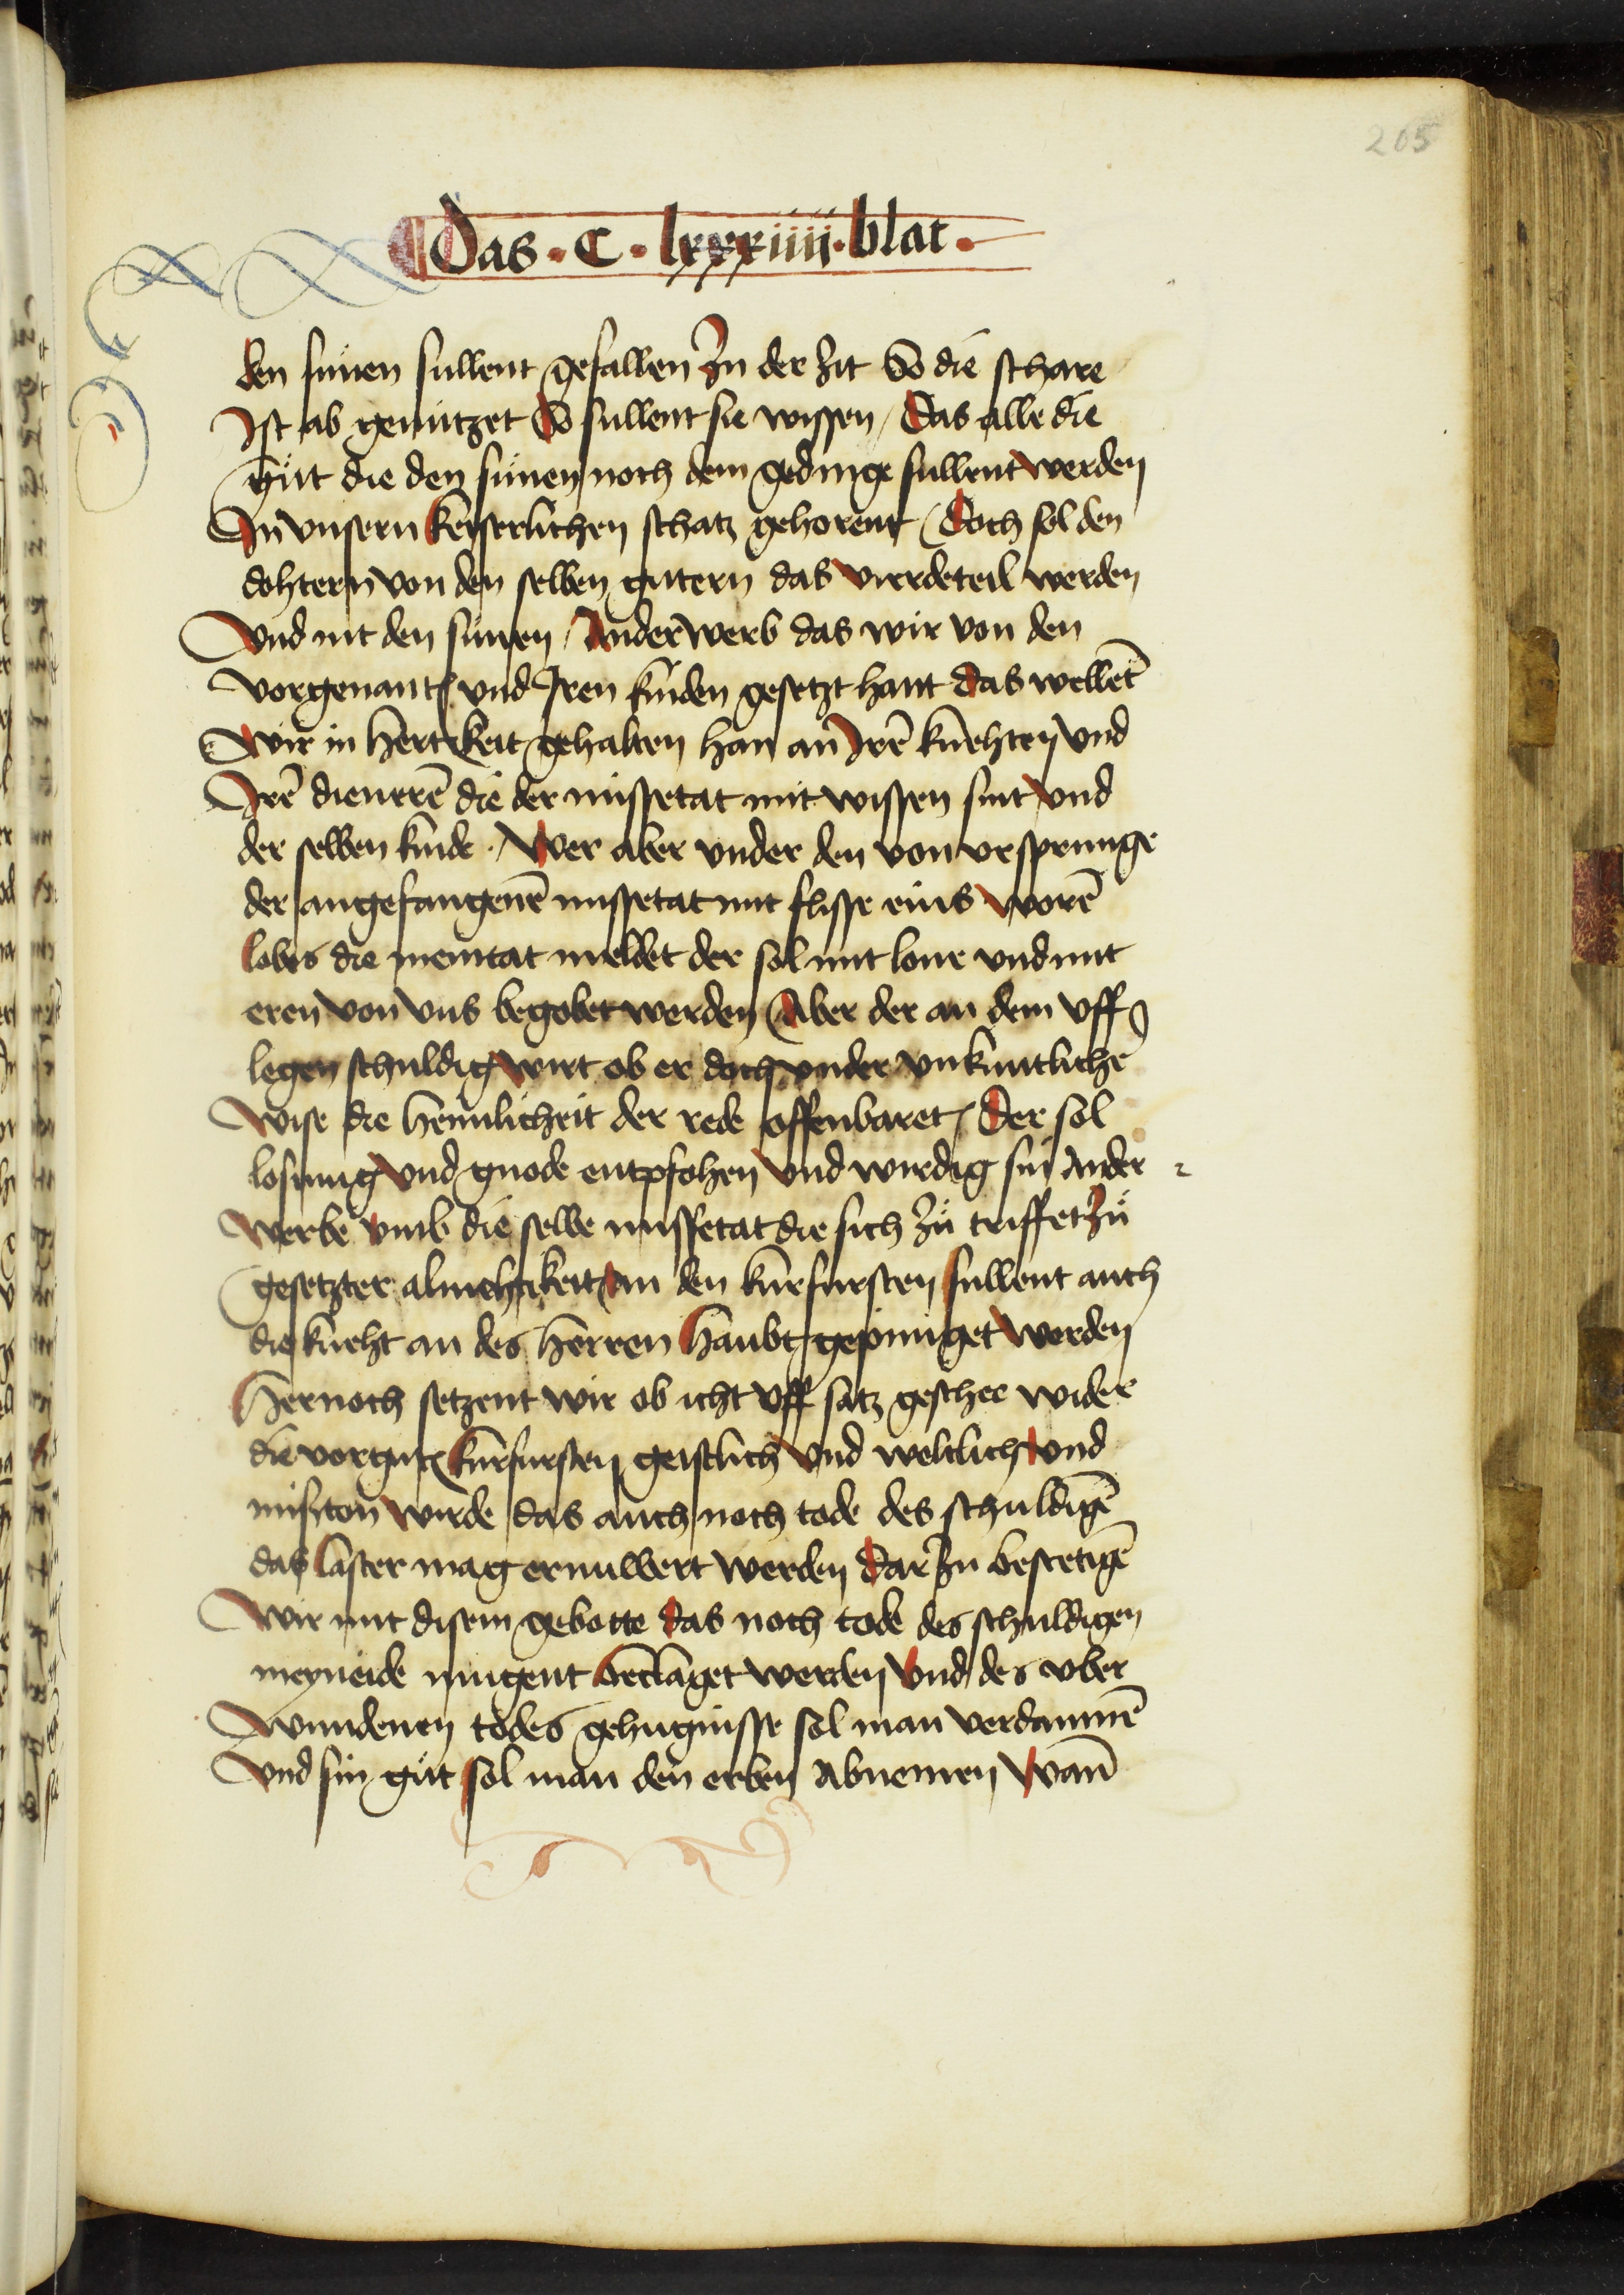 205
Das · C · lxxxiiii · blat ·
den sünen sullent gefallen Jn der zit So die schare
Jst ab genützet So sullent sie wissen / Das alle die
güt die den sünen noch dem gedinge sullent werden
Jn vnsern keiserlichen schatz gehorent / Doch sol den
dohtern von den selben gutern das vierdeteil werden
Vnd nit den sünen / Anderwerb das wir von den
vorgenant vnd Jren kinden gesetzt hant das wellēt
Wir in hertekeit gehalten han an Jrē knehten vnd
Jrē dienerē die der missetat mit wissen sint vnd
der selben kinde · Wer aber vnder den von vrsprunge
der angefangenē missetat mit flisse eins worē
lobes die meintat meldet der sol mit lone vnd mit
eren von vns begobet werden / Aber der an dem vff
legen schuldig wirt ob er doch vnder vnkuntlichē
Wise die heimlicheit der rede offenbaret / Der sol
losung vnd gnode entpfohen vnd wirdig sin Ander
werbe vmb die selbe missetat die sich zü triffet zü
gesetzter almehtikeit an den kurfursten sullent auch
die kneht an des herren haubt gepiniget werden
Hernoch setzent wir ob icht vff satz geschee wider
die vorgnt kurfursten geistlich vnd weltlich vnd
misseton wirde das auch noch tode des schuldigē
das laster mag ernuwert werden dar zu bestetigē
Wir mit disem gebotte das noch tode des schuldigen
meyneide mugent beclaget werden vnd des vber
wundenen todes gehugnisse sol man verdammē
Vnd sin güt sol man den erben Abnemen Wan̄